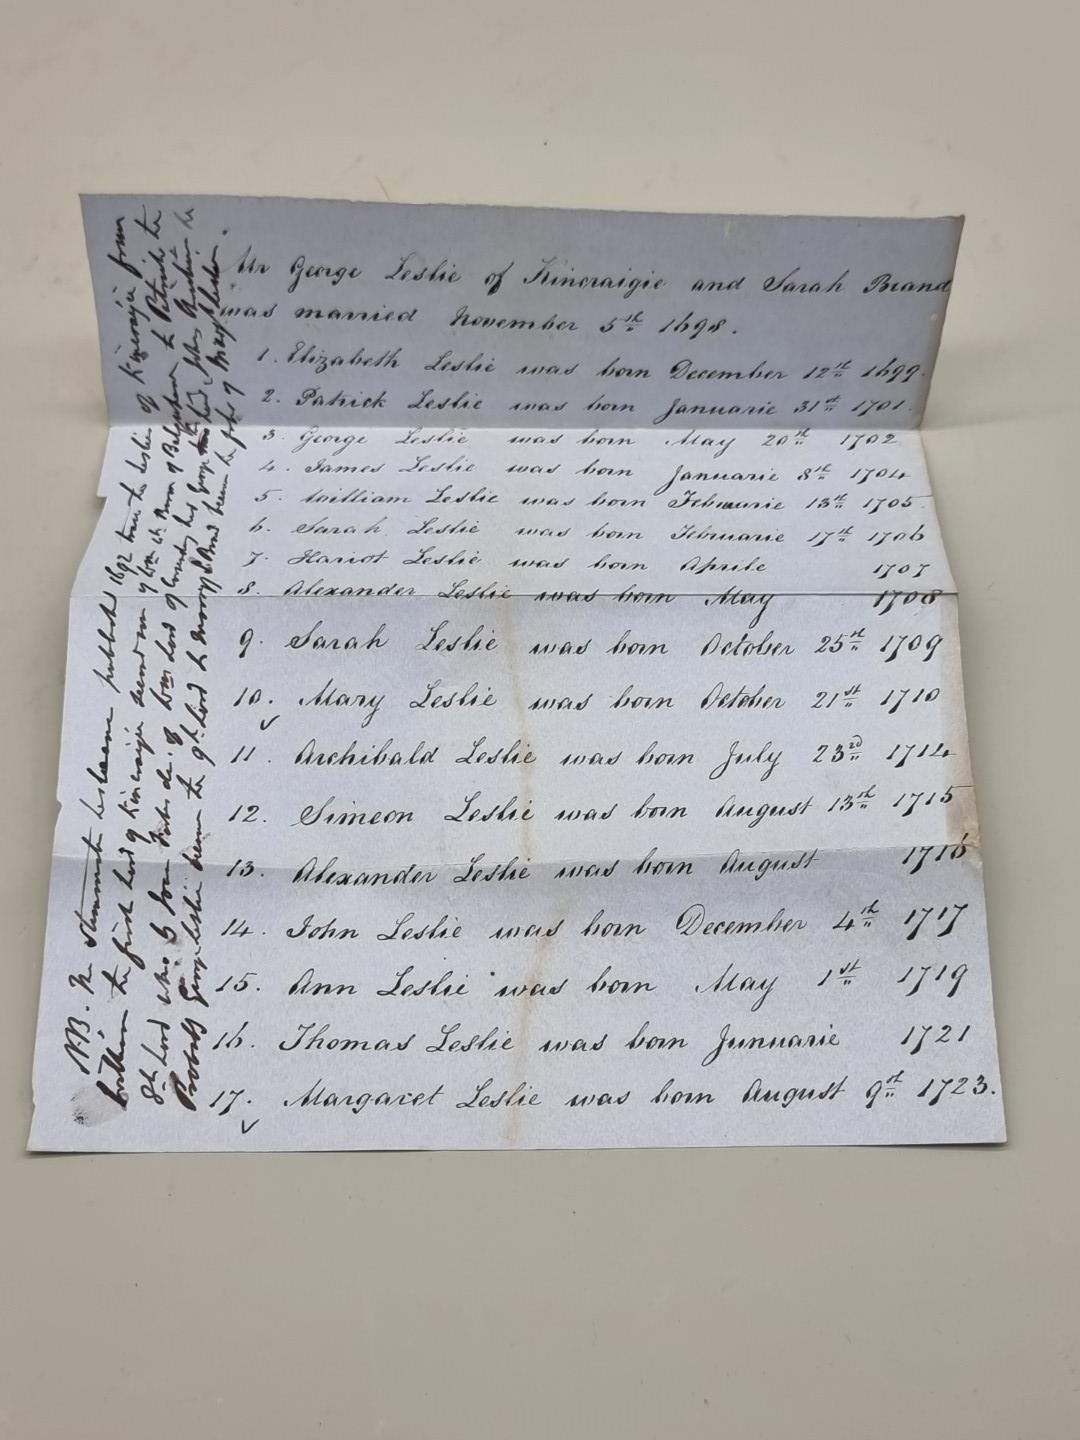 Mr George Leslie of Kincraigie and Sarah Brand
was married November 5th 1698.
1. Elizabeth Leslie was born December 12th 1699.
2. Patrick Leslie was born Januarie 31st 1701.
3. George Leslie was born May 20th 1702
4. James Leslie was born Januarie 8th 1704
5. William Leslie was born Februarie 13th 1705
6. Sarah Leslie was born Februarie 17th 1706
7. Hariot Leslie was born Aprile 1707
8. Alexander Leslie was born May 1708
9. Sarah Leslie was born October 25th 1709
10. Mary Leslie was born October 21st 1710
11. Archibald Leslie was born July 23rd 1714
12. Simeon Leslie was born August 13th 1715
13. Alexander Leslie was born August 1716
14. John Leslie was born December 4th 1717
15. Ann Leslie was born May 1st 1719
16. Thomas Leslie was born Junuarie 1721
17. Margaret Leslie was born August 9th 1723.
N.B. The published 1692 the Leslies of Kincraigie from
William the first Laird of Kincraigie second son of of Balquhain to Patrick the
8th Laird who his George his
Probably George Leslie the 9th Laird